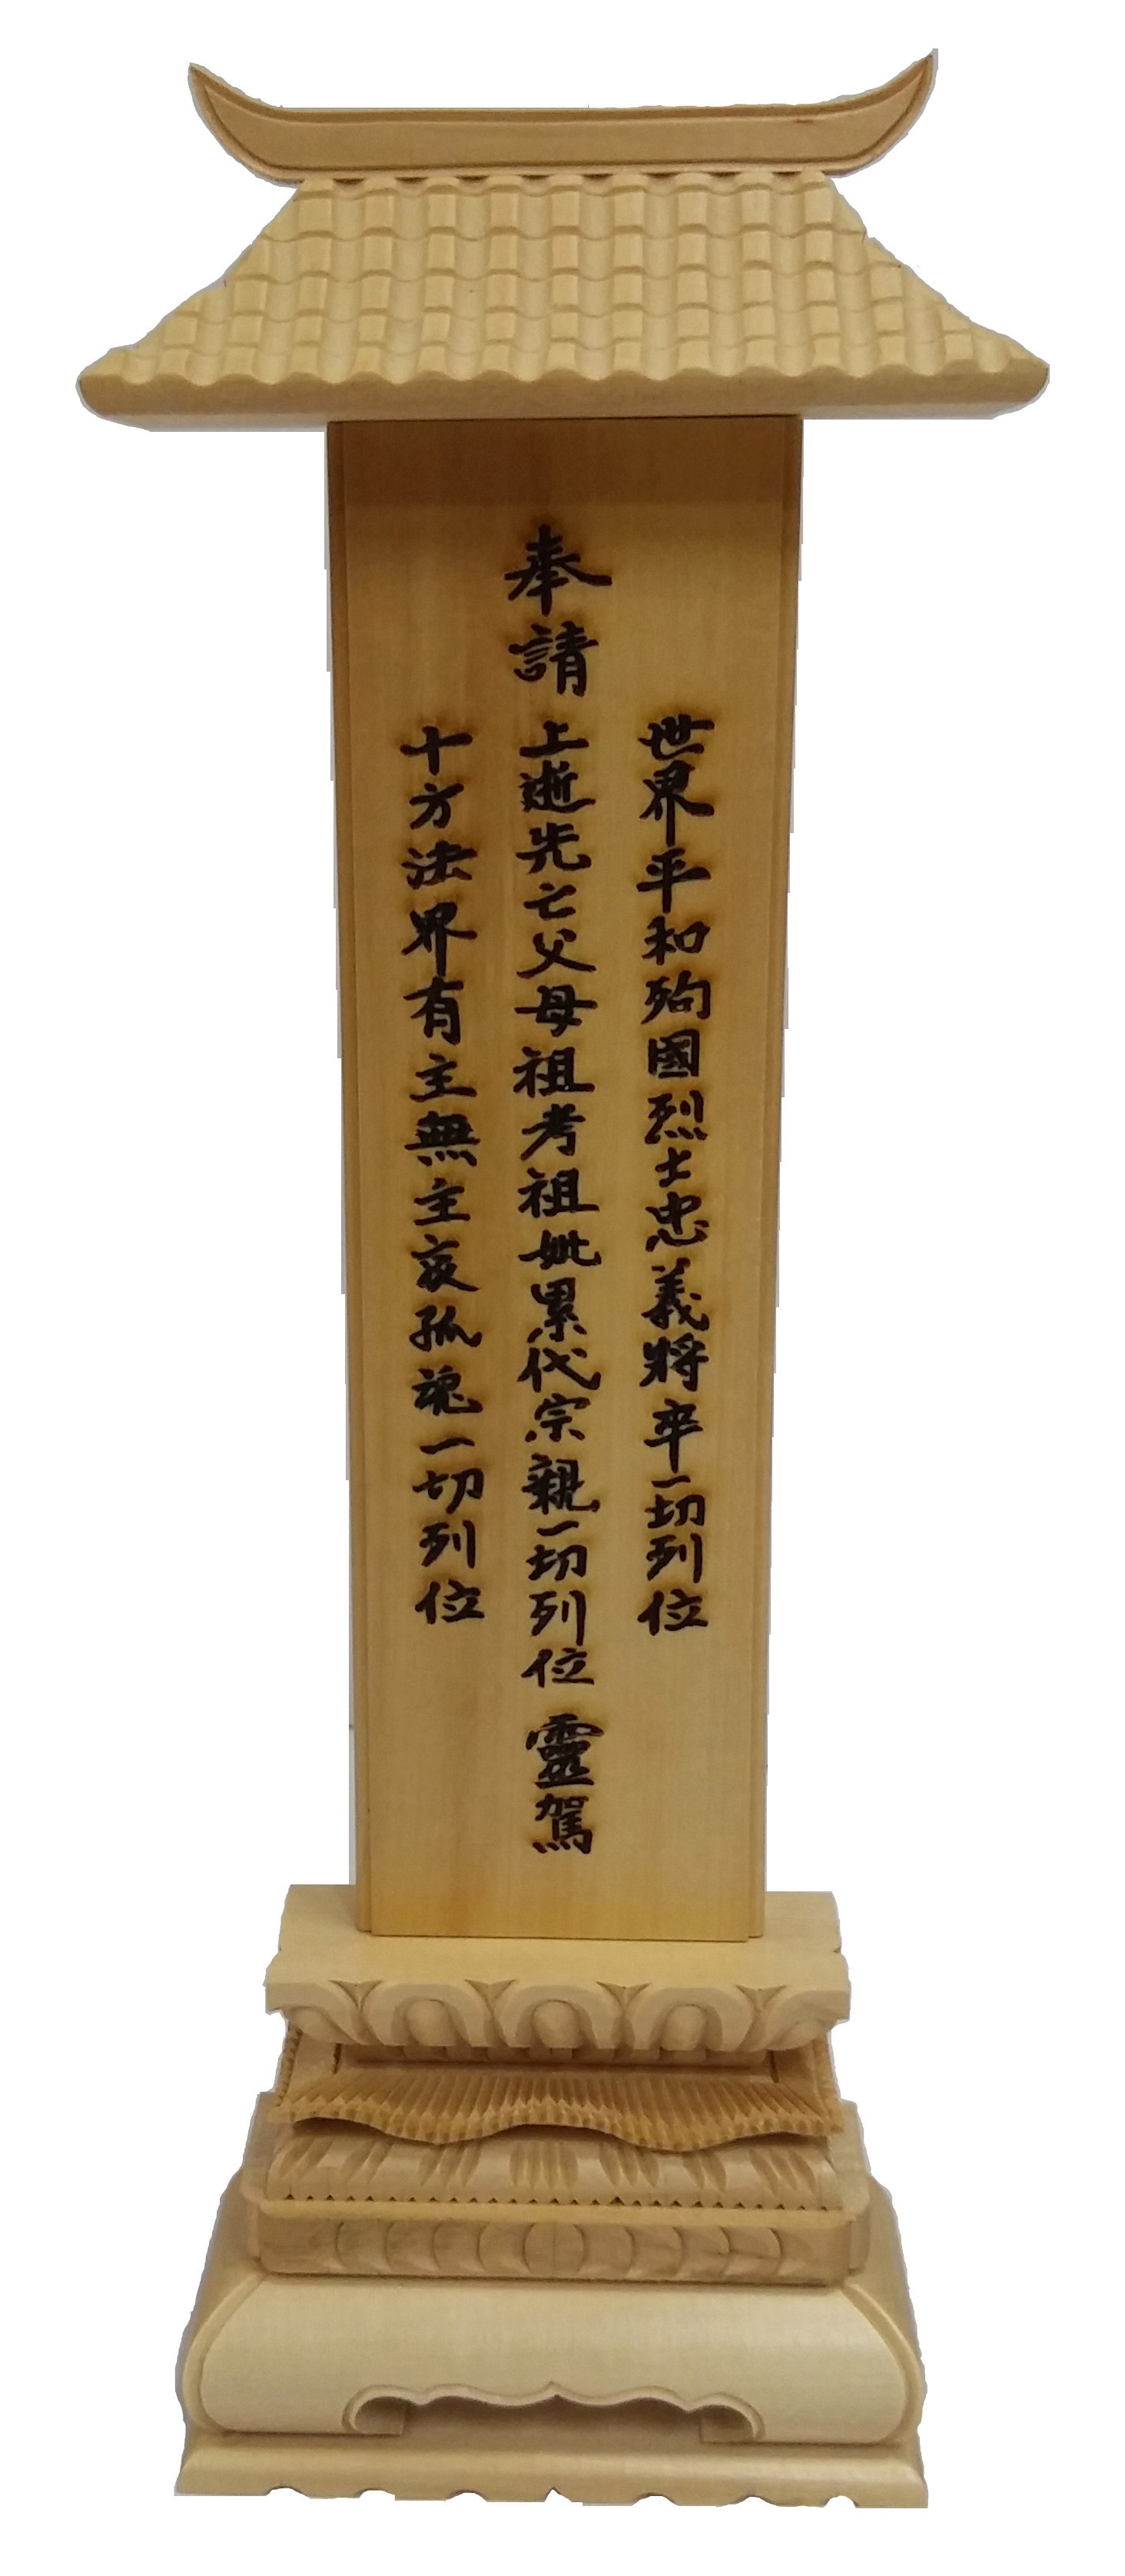 奉請
世界平和殉國烈士忠義將卒一切列位
上逝先亡父母祖考祖妣累代宗親一切列位
十方法界有主無主哀孤魂一切列位
靈駕